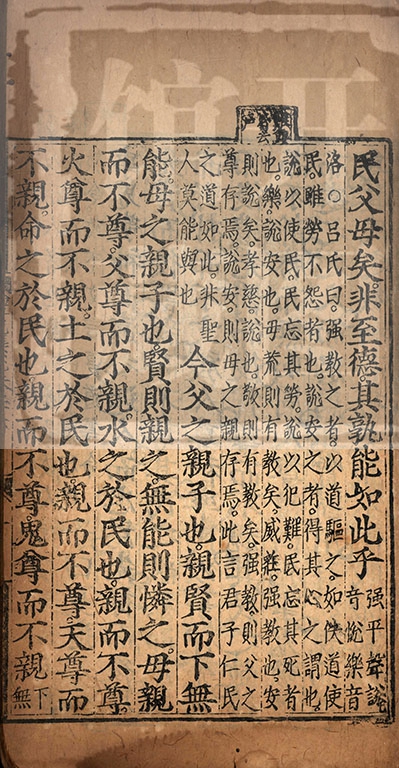 民父母矣。非至德。其孰能如此乎
强平聲說
音悅樂音
洛○呂氏曰。强教之者。以道驅之。如佚道使
民。雖勞不怨者也。說安之者。得其心之謂也。
說以使民。民忘其勞。說以犯難。民忘其死者
也。樂。說安也。毋荒。則有教矣。威莊。强教也。安
則說矣。孝慈。說也。敬則有教矣。强教。則父之
尊存焉。說安。則母之親存焉。此言君子仁民
之道如此。非聖
人莫能與也
今父之親子也。親賢而下無
能。母之親子也。賢則親之。無能則憐之。母親
而不尊。父尊而不親。水之於民也。親而不尊
火尊而不親。土之於民也。親而不尊。天尊而
不親。命之於民也。親而不尊。鬼尊而不親
下
無